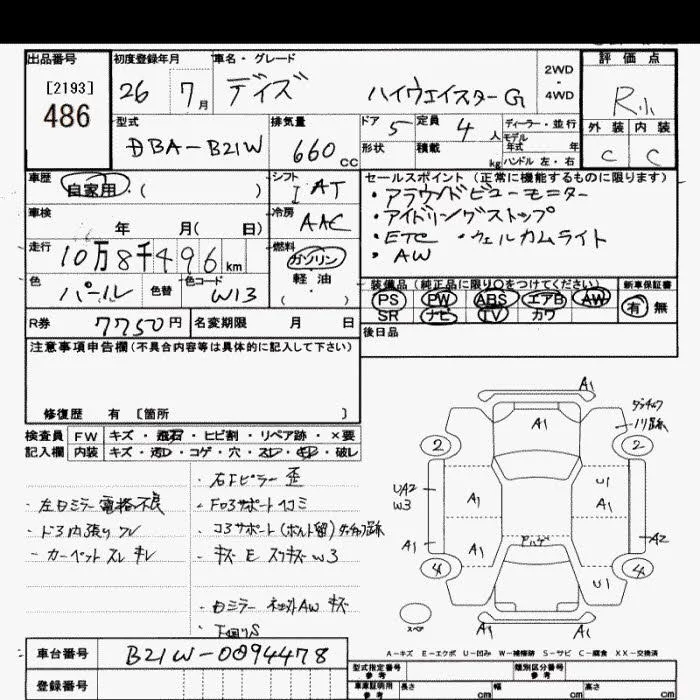 出品番号
[2193]
486
初度登録年月
26 7月
車名・グレード
デイズ ハイウェイスターG
2WD
・
4WD
評価点
R小
外装 内装
C C
型式
DBA-B21W
排気量
660cc
ドア 5
定員 4人
形状
積載 kg
ディーラー・並行
モデル
年式 年
ハンドル 左・右
車歴
自家用・( )
シフト
I AT
セールスポイント(正常に機能するものに限ります)
・アラウンドビューモニター
・アイドリングストップ
・ETC ・ウェルカムライト
・AW
車検
年 月( 日)
冷房
AAC
走行
10万8千496km
燃料
ガソリン
軽・油
( ・ )
色
パール
色替
色コード
W13
装備品(純正品に限り○をつけてください)
PS PW ABS エアB AW
SR ナビ TV カワ
新車保証書
有 無
R券
7750円
名変期限 月 日
後日品
注意事項申告欄(不具合内容等は具体的に記入して下さい)
修復歴 有 [箇所 ]
検査員
記入欄
FW キズ・飛石・ヒビ割・リペア跡・×要
内装 キズ・汚レ・コゲ・穴・スレ・キレ・破レ
・左ロミラー電格不良
・ドラ内張り ワレ
・カーペット スレ キレ
・右Fピラー 歪
・Fロアサポート凹コミ
・コアサポート(ボルト留)タッチUP跡
・キズ E スリキズ W3
・ロミラー 社外AW キズ
・下廻りS
A1
タッチアップ
ノリ跡
A1
2
2
UA2
W3
A1
U1
A1
A1
A1
アハゲ
A2
4
4
U1
A1
スペア
A-キズ E-エクボ U-凹み W-補修跡 S-サビ C-腐食 XX-交換済
車台番号
B21W-0094478
登録番号
型式指定番号
参考
類別区分番号
参考
車庫証明用
参考
長さ cm
幅 cm
高さ cm